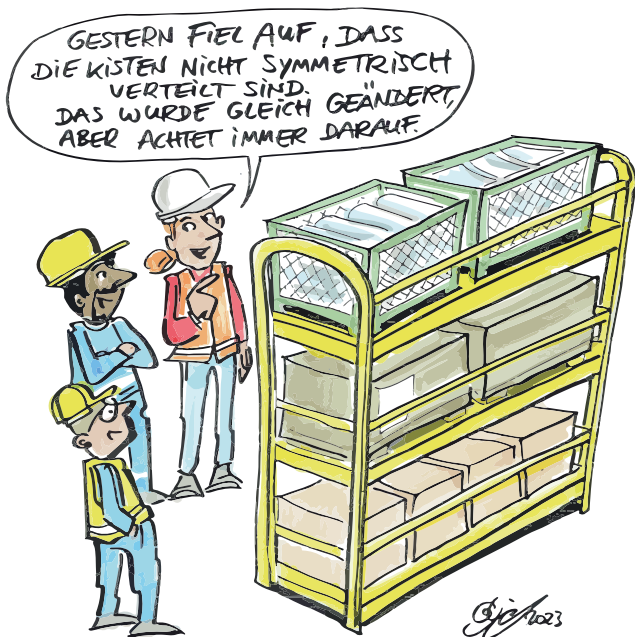 GESTERN FIEL AUF, DASS
DIE KISTEN NICHT SYMMETRISCH
VERTEILT SIND.
DAS WURDE GLEICH GEÄNDERT,
ABER ACHTET IMMER DARAUF.
2023